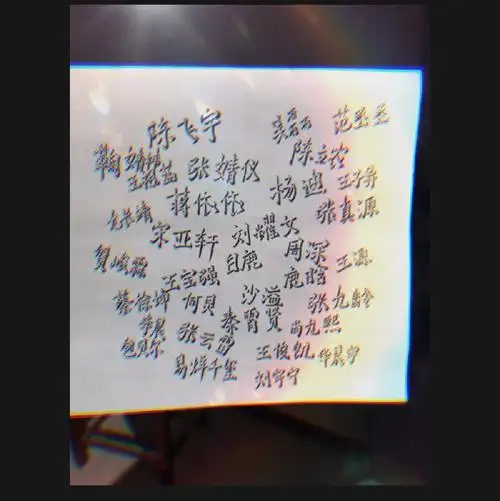 陈飞宇 吴磊 范丞丞
鞠婧祎 张婧仪 陈立农
蒋依依 杨迪 王子异
宋亚轩 刘耀文 张真源
贺峻霖 白鹿 周深
王宝强 鹿晗 王源
蔡徐坤 何贝 沙溢 张九龄
华晨 张云雷 秦霄贤 尚九熙
鲍贝尔 王俊凯 华晨宇
易烊千玺 刘宇宁